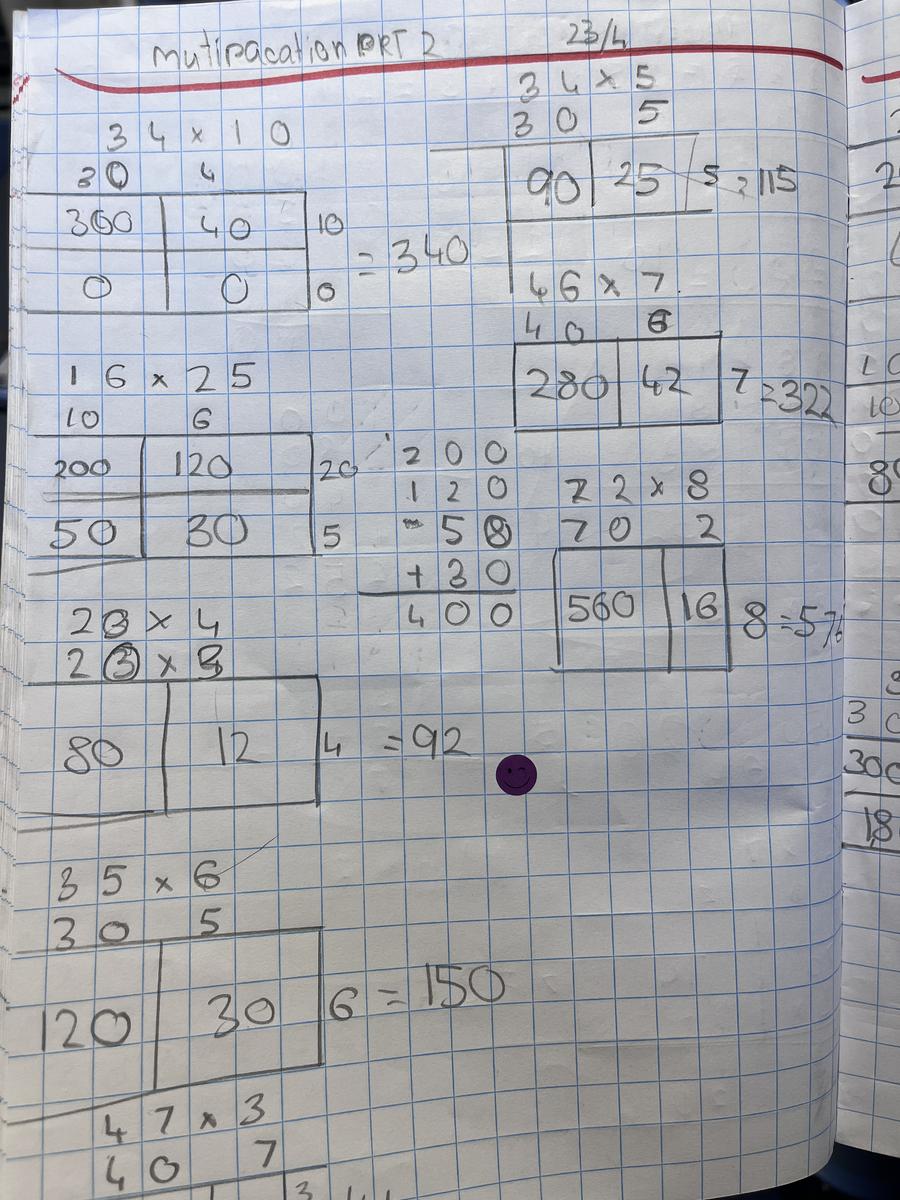 mutipacation PRT 2 23/4
34 × 10
30 4
300 40 10
0 0 0
= 340
16 × 25
10 6
200 120 20
50 30 5
200
120
50
+ 30
400
23 × 4
80 12 4 = 92
35 × 6
30 5
120 30 6 = 150
47 × 3
40 7
34 × 5
30 5
90 25 5 = 115
46 × 7
40 6
280 42 7 = 322
72 × 8
70 2
560 16 8 = 576